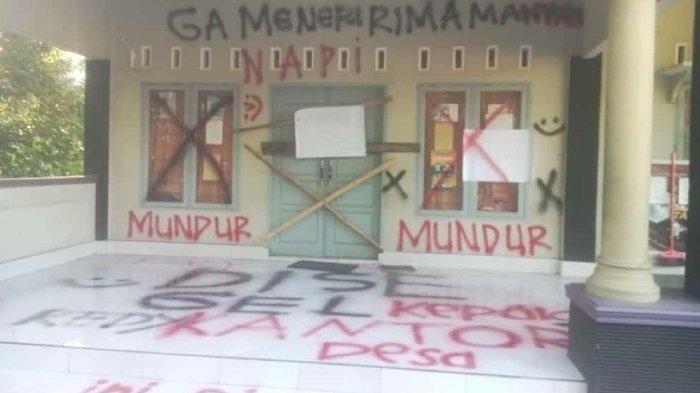 GA MENERIRIMA MANTAN
NAPI
MUNDUR
MUNDUR
DISE
GEL KEPAK
REDY KANTOR
Desa
ini